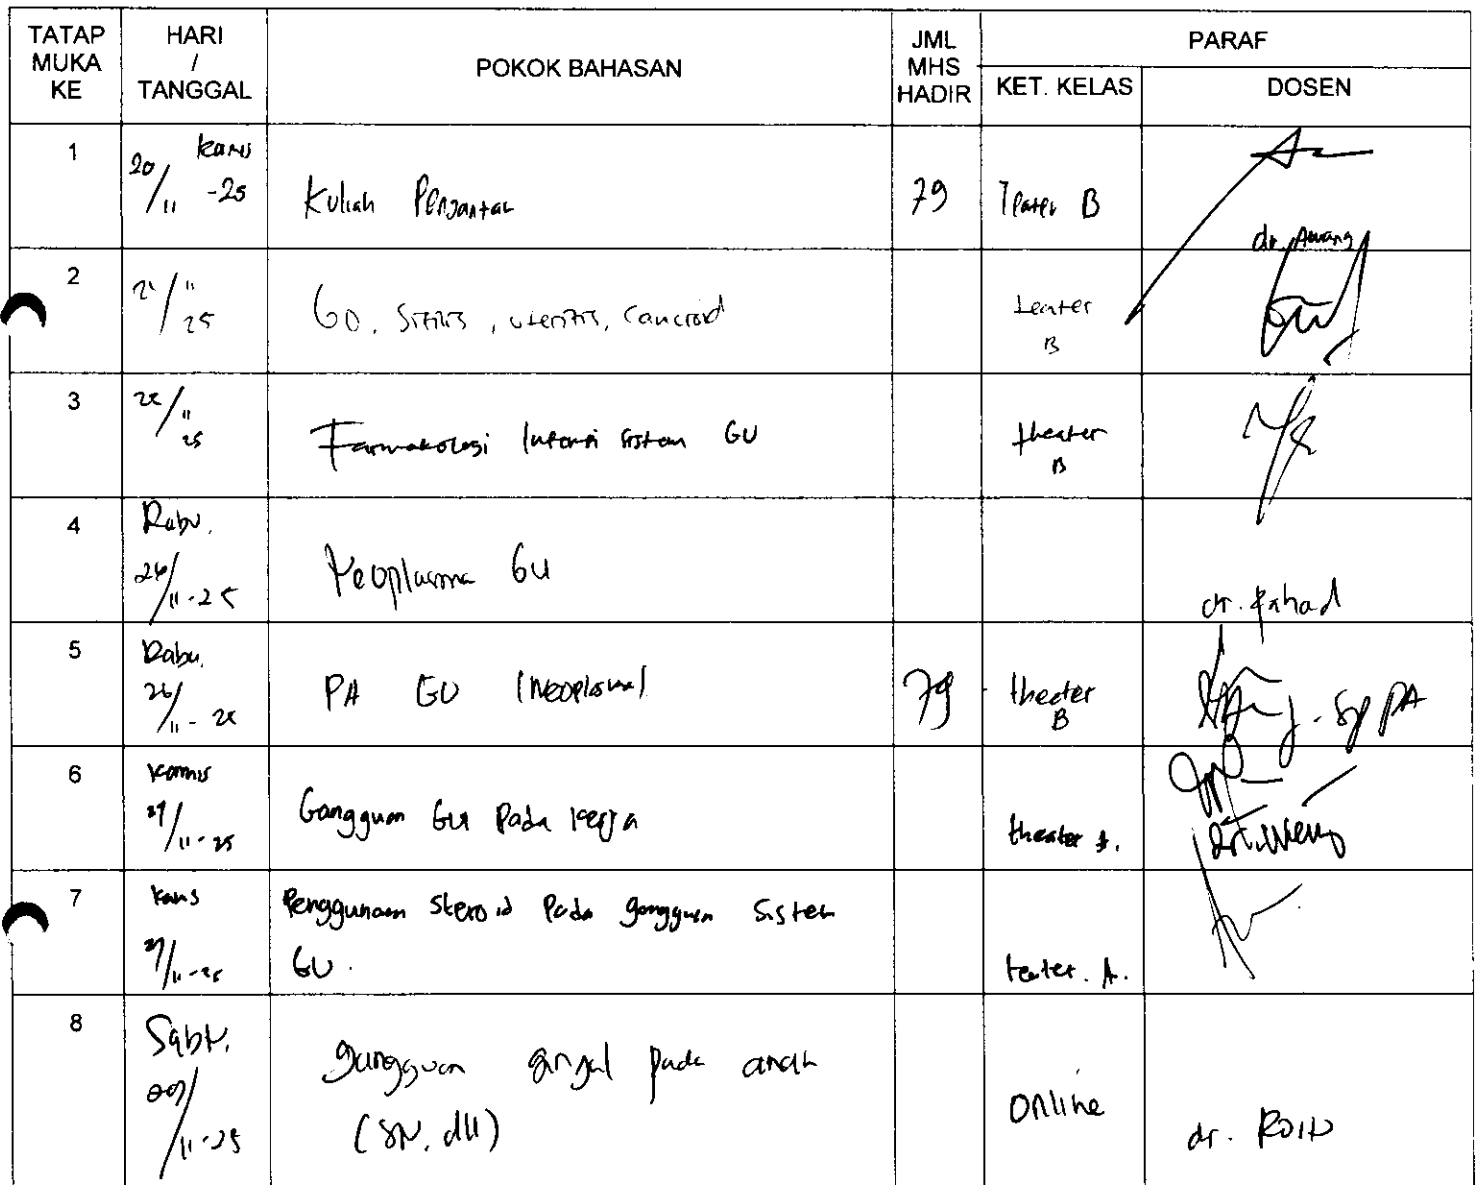 TATAP MUKA KE
HARI / TANGGAL
POKOK BAHASAN
JML MHS HADIR
PARAF
KET. KELAS
DOSEN
1
Kamis
20/11 -25
Kuliah Pengantar
79
Teater B
dr. Awang
2
21/11 25
GO, Sifilis, uteritis, Cancroid
teater
B
3
22/11 25
Farmakologi Infeksi sistem GU
theater
B
4
Rabu,
26/11-25
Neoplasma GU
dr. Fahad
5
Rabu,
26/11- 25
PA GU (Neoplasma)
79
theater
B
Sp PA
6
Kamis
27/11-25
Gangguan GU Pada Kerja
theater A.
7
Kamis
27/11-25
Penggunaan Steroid Pada gangguan Sistem
GU.
teater. A.
8
Sabtu,
29/11-25
gangguan ginjal pada anak
(SN, dll)
Online
dr.